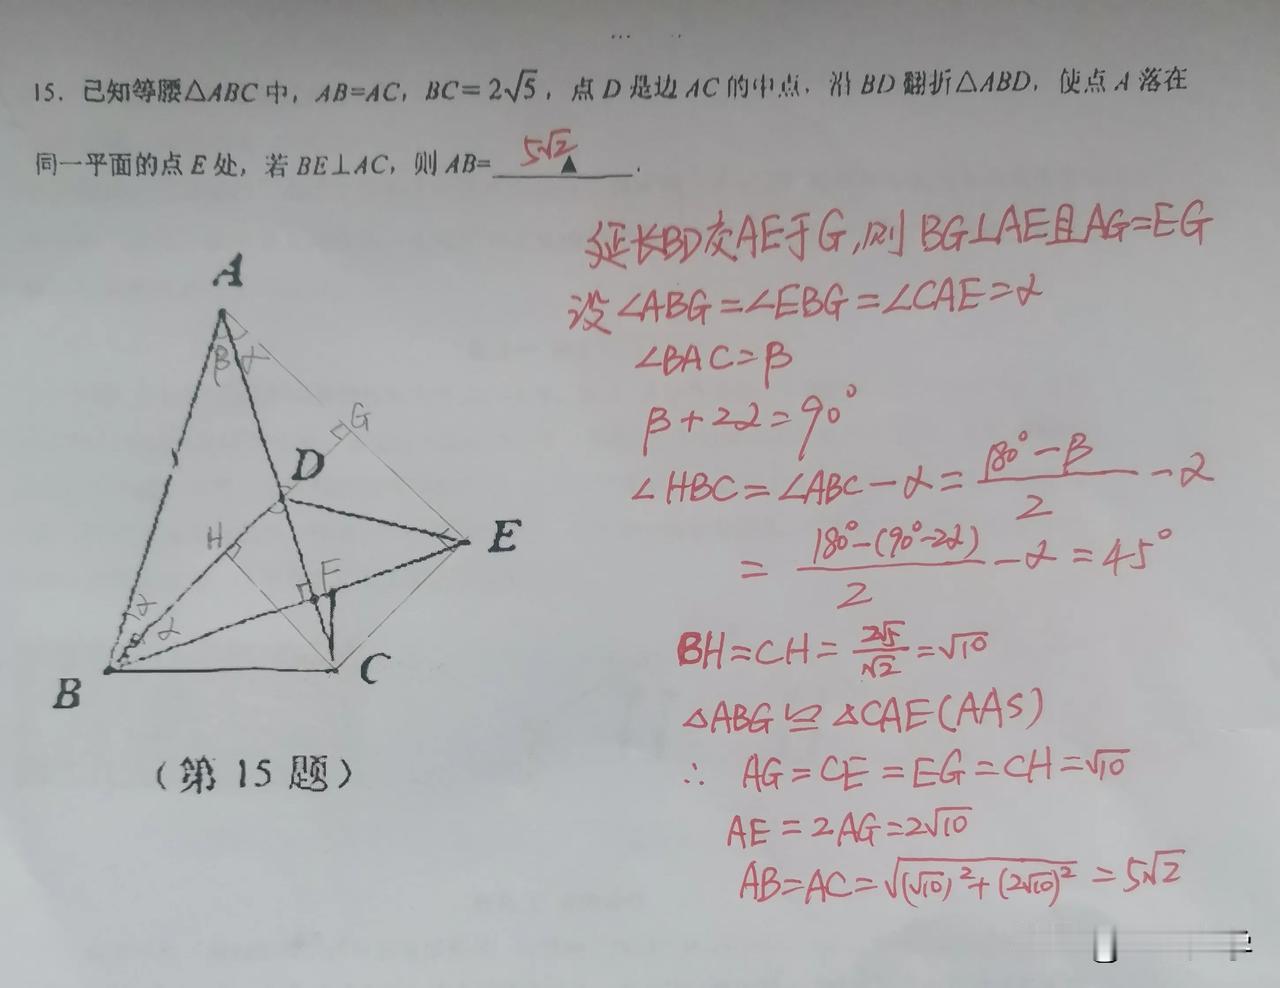 15. 已知等腰△ABC中, AB=AC, BC=2√5, 点D是边AC的中点, 沿BD翻折△ABD, 使点A落在
同一平面的点E处, 若BE⊥AC, 则AB=5√2▲.
延长BD交AE于G,则BG⊥AE且AG=EG
设∠ABG=∠EBG=∠CAE=α
∠BAC=β
β+2α=90°
∠HBC=∠ABC-α=(180°-β)/2-α
=(180°-(90°-2α))/2-α=45°
BH=CH=2√5/√2=√10
△ABG≌△CAE(AAS)
∴ AG=CE=EG=CH=√10
AE=2AG=2√10
AB=AC=√((√10)²+(2√10)²)=5√2
A
β α
G
D
H
E
F
α
α
B
C
(第15题)